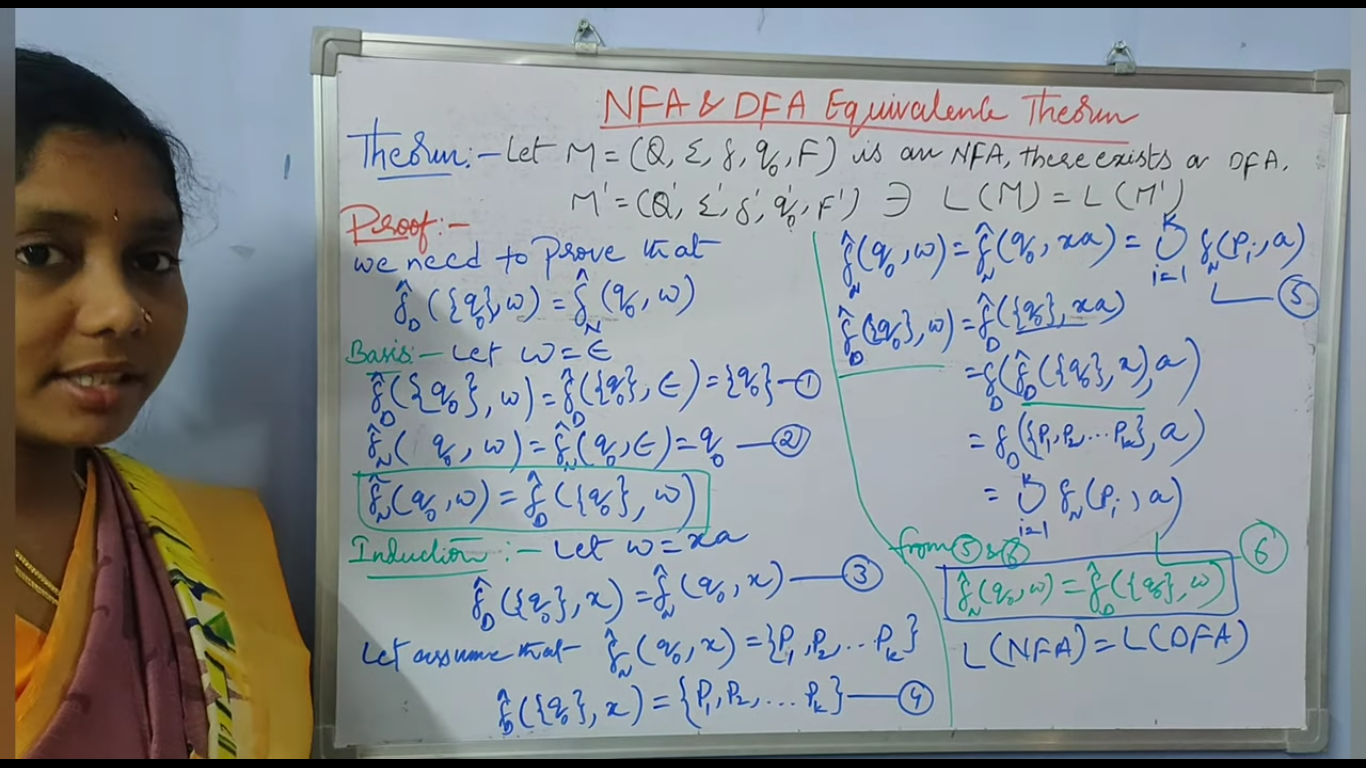 NFA & DFA Equivalence Theorem
Theorem:- Let M = (Q, Σ, δ, q₀, F) is an NFA, there exists a DFA.
M' = (Q', Σ', δ', q₀', F') ∋ L(M) = L(M')
Proof:-
we need to prove that
δ̂_D({q₀}, w) = δ̂_N(q₀, w)
Basis:- Let w = ε
δ̂_D({q₀}, w) = δ̂_D({q₀}, ε) = {q₀} — ①
δ̂_N(q₀, w) = δ̂_N(q₀, ε) = q₀ — ②
δ̂_N(q₀, w) = δ̂_D({q₀}, w)
Induction:- Let w = xa
δ̂_D({q₀}, x) = δ̂_N(q₀, x) — ③
Let assume that δ̂_N(q₀, x) = {P₁, P₂, ... Pₖ}
δ̂_D({q₀}, x) = {P₁, P₂, ... Pₖ} — ④
δ̂_N(q₀, w) = δ̂_N(q₀, xa) = ∪_{i=1}^{k} δ_N(Pᵢ, a) — ⑤
δ̂_D({q₀}, w) = δ̂_D({q₀}, xa)
= δ_D(δ̂_D({q₀}, x), a)
= δ_D({P₁, P₂, ... Pₖ}, a)
= ∪_{i=1}^{k} δ_N(Pᵢ, a) — ⑥
from ⑤ & ⑥
δ̂_N(q₀, w) = δ̂_D({q₀}, w)
L(NFA) = L(DFA)